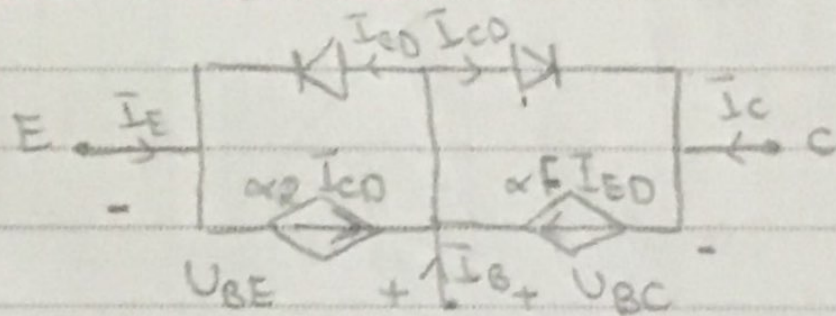 I_CD I_CD
E I_E I_C C
α_R I_CD α_F I_ED
- -
U_BE + I_B + U_BC